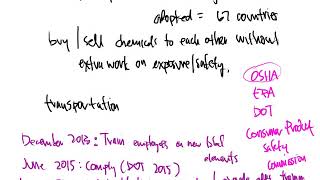 adopted = 67 countries
buy / sell chemicals to each other without
extra work on exposure/safety.
OSHA
EPA
DOT
transportation
Consumer Product
Safety
Commission
December 2013: Train employees on new label
elements
June 2015: Comply (DOT 2015)